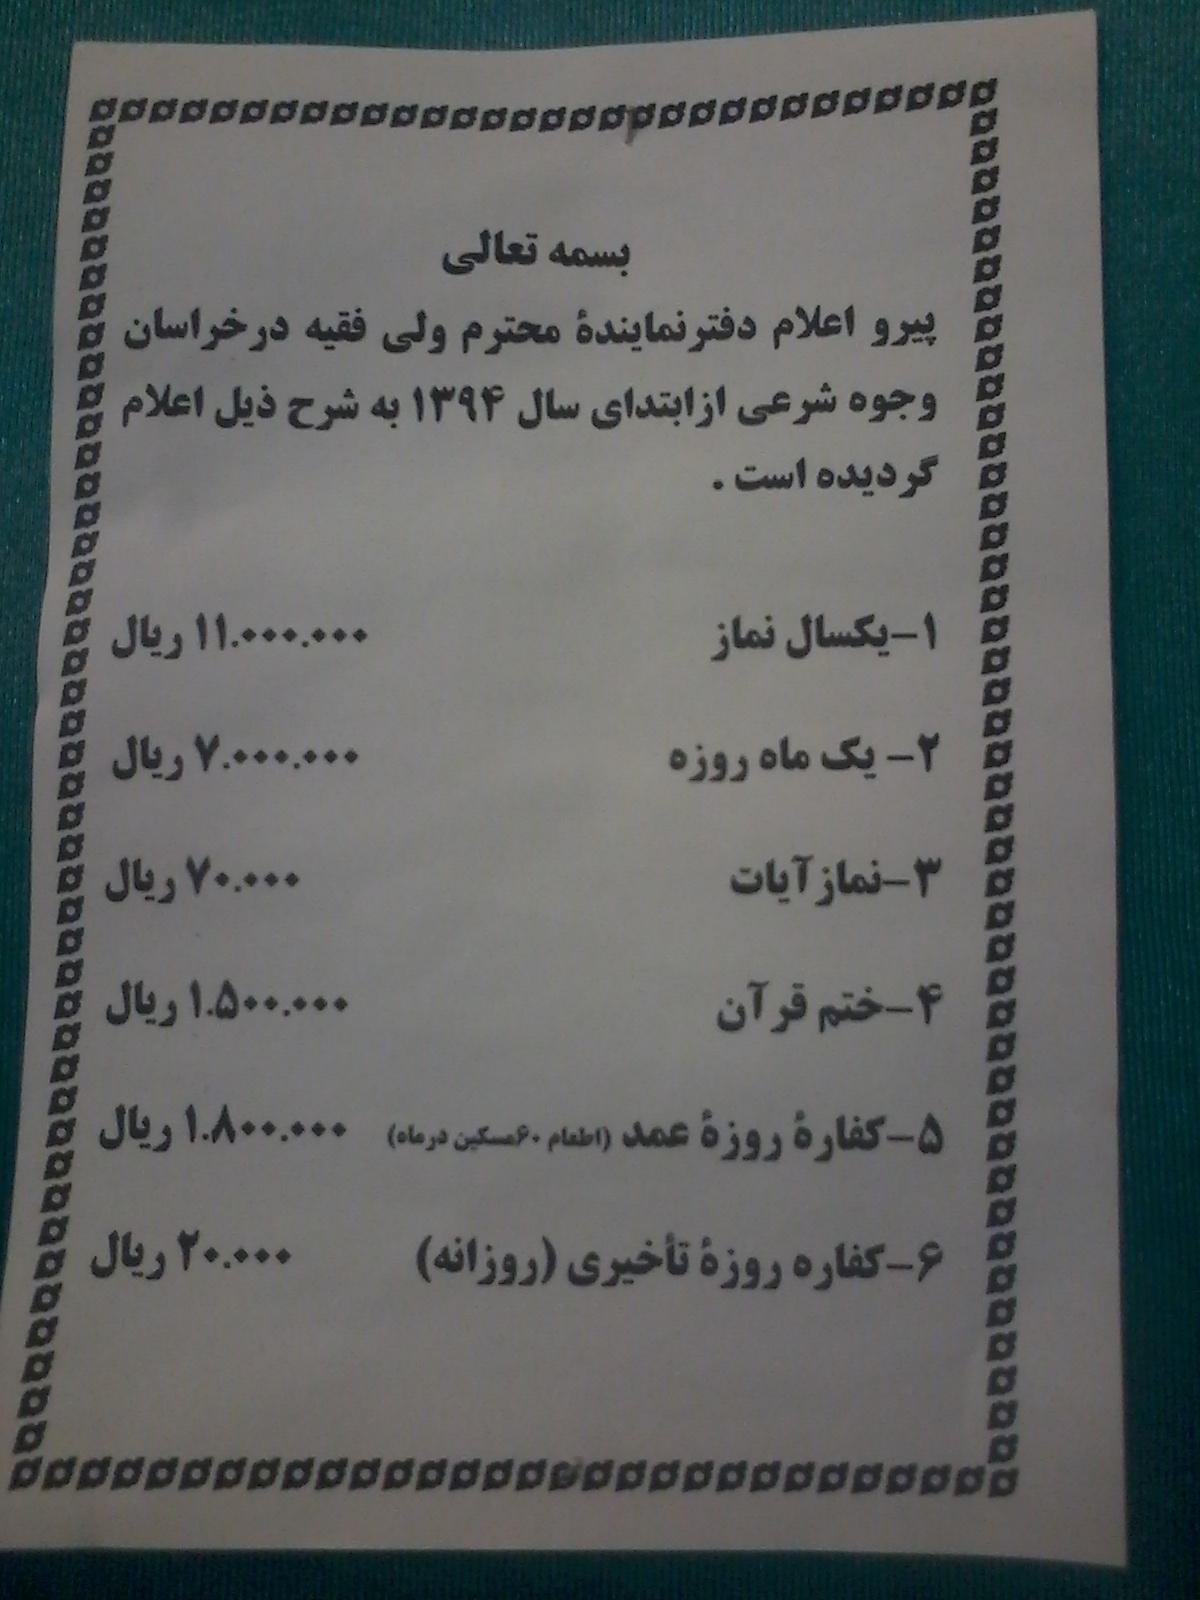 بسمه تعالی
پیرو اعلام دفترنمایندهٔ محترم ولی فقیه درخراسان
وجوه شرعی ازابتدای سال ۱۳۹۴ به شرح ذیل اعلام
گردیده است .
۱-یکسال نماز ۱۱.۰۰۰.۰۰۰ ریال
۲- یک ماه روزه ۷.۰۰۰.۰۰۰ ریال
۳-نمازآیات ۷۰.۰۰۰ ریال
۴-ختم قرآن ۱.۵۰۰.۰۰۰ ریال
۵-کفارهٔ روزهٔ عمد (اطعام ۶۰مسکین درماه) ۱.۸۰۰.۰۰۰ ریال
۶-کفاره روزهٔ تأخیری (روزانه) ۲۰.۰۰۰ ریال